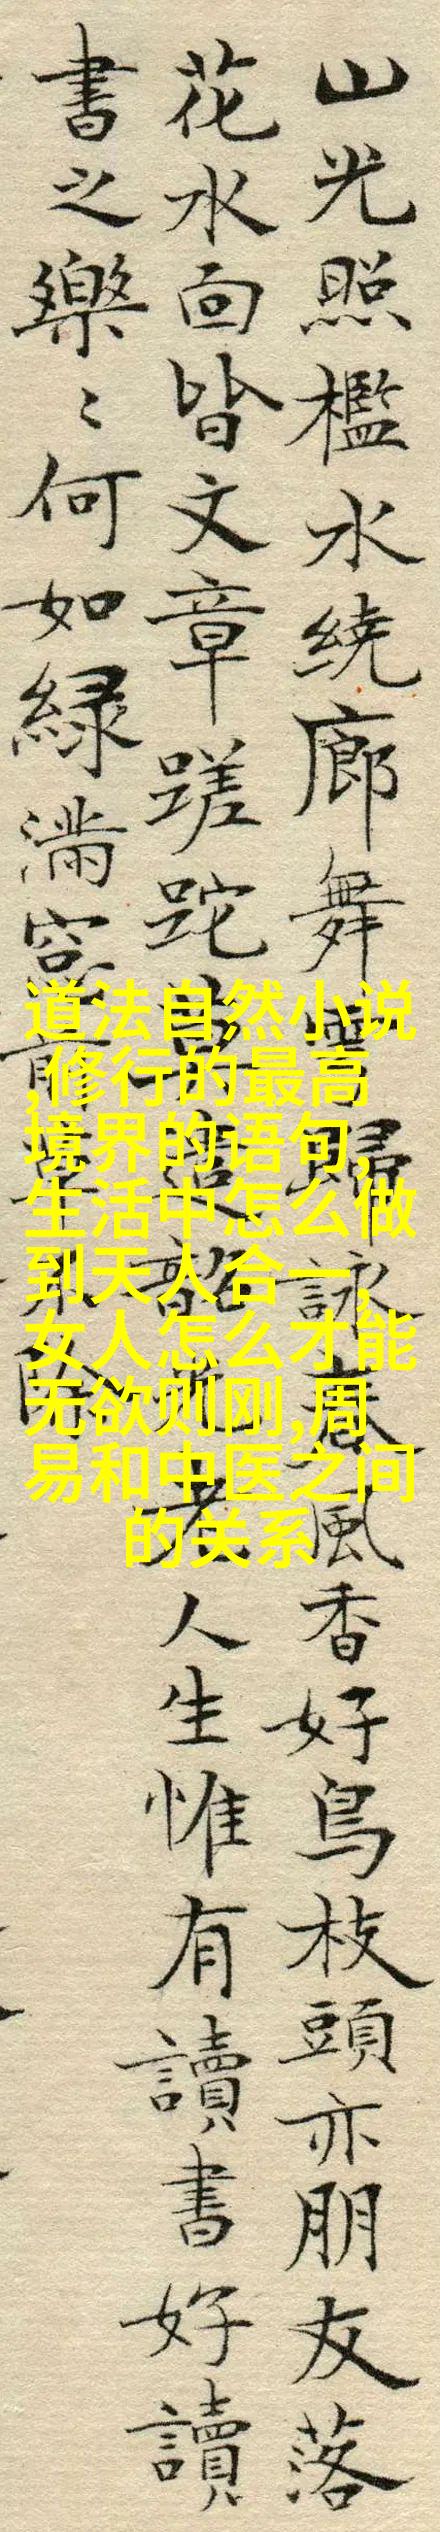 山光照檻水绕廊舞雩歸詠春風香好鳥枝頭亦朋友落
花水面皆文章蹉跎莫遣韶光老人生惟有讀書好讀
書之樂〻何如緑滿窓前草不除
道法自然小说
,修行的最高
境界的语句,
生活中怎么做
到天人合一,
女人怎么才能
无欲则刚,周
易和中医之间
的关系